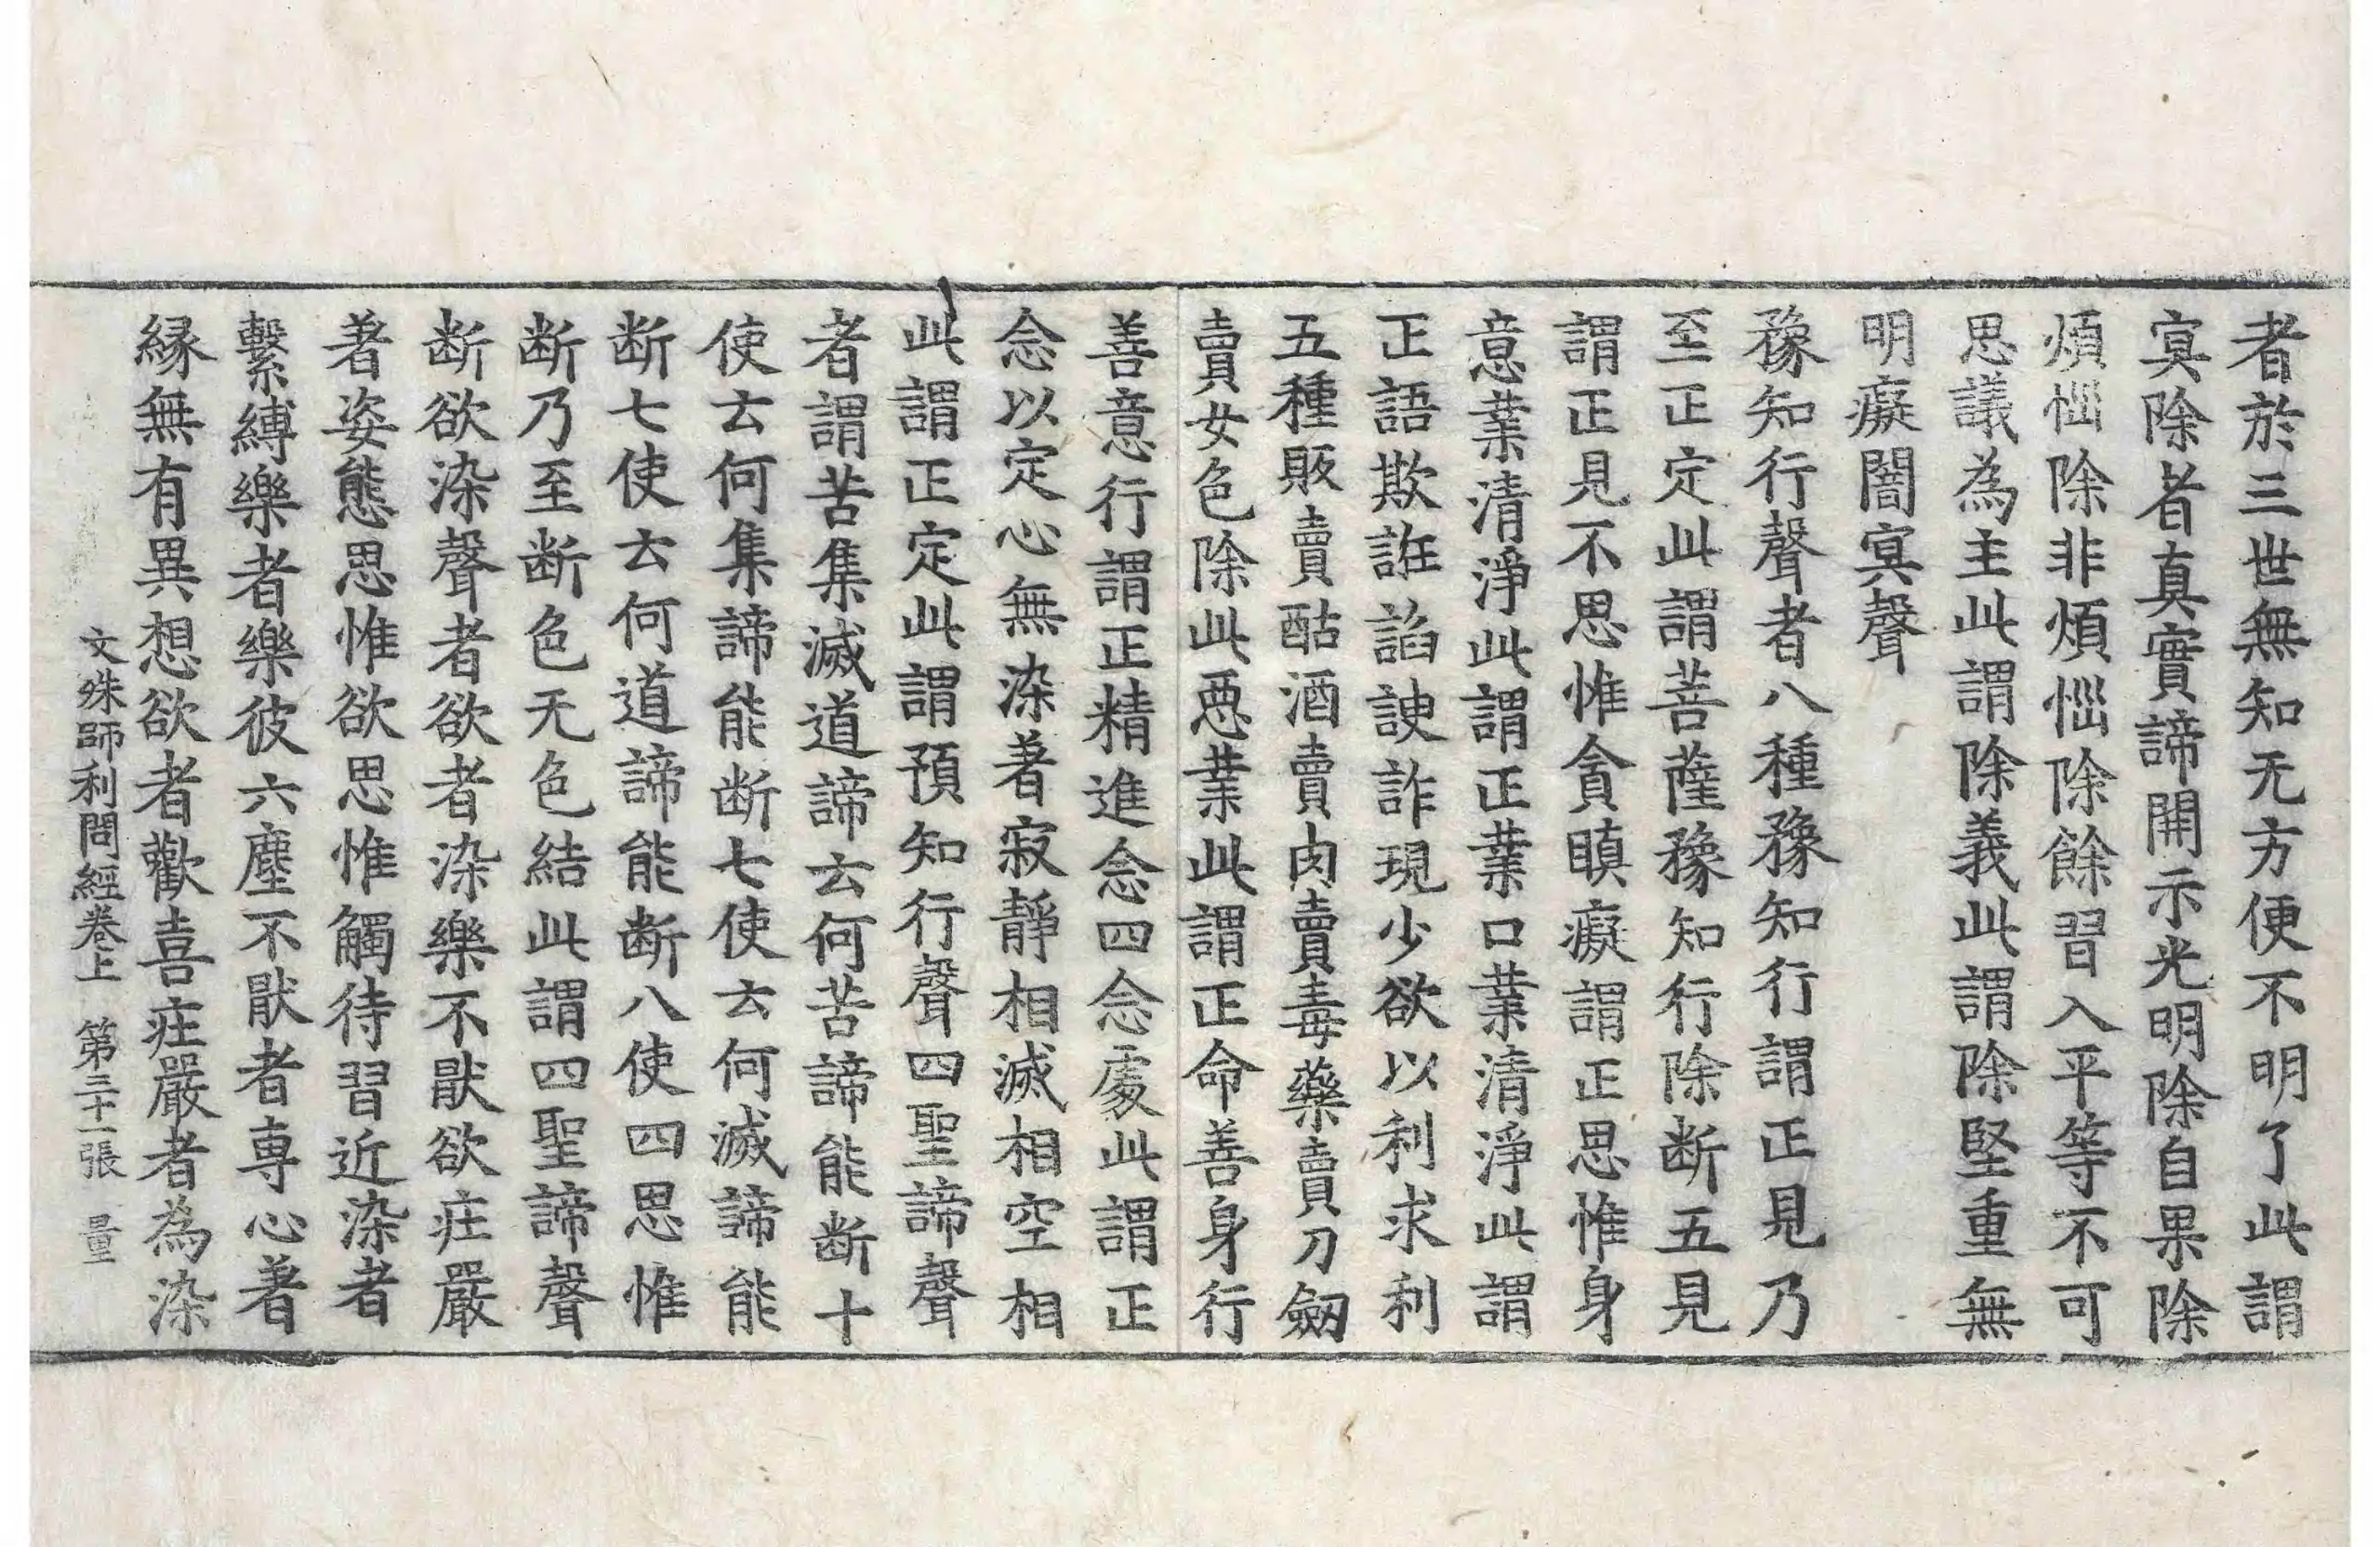 者於三世無知无方便不明了此謂
㝠除者真實諦開示光明除自果除
煩惱除非煩惱除除餘習入平等不可
思議為主此謂除義此謂除堅重無
明癡闇㝠聲
豫知行聲者八種豫知行謂正見乃
至正定此謂菩薩豫知行除断五見
謂正見不思惟貪瞋癡謂正思惟身
意業清淨此謂正業口業清淨此謂
正語欺誑諂諛詐現少欲以利求利
五種販賣酤酒賣肉賣毒藥賣刀劒
賣女色除此惡業此謂正命善身行
善意行謂正精進念四念處此謂正
念以定心無染著寂靜相滅相空相
此謂正定此謂預知行聲四聖諦聲
者謂苦集滅道諦云何苦諦能断十
使云何集諦能断七使云何滅諦能
断七使云何道諦能断八使四思惟
断乃至断色无色結此謂四聖諦聲
断欲染聲者欲者染樂不猒欲庄嚴
著姿態思惟欲思惟觸待習近染者
繫縛樂者樂彼六塵不猒者専心著
縁無有異想欲者歡喜庄嚴者為染
文殊師利問經卷上 第三十一張 量